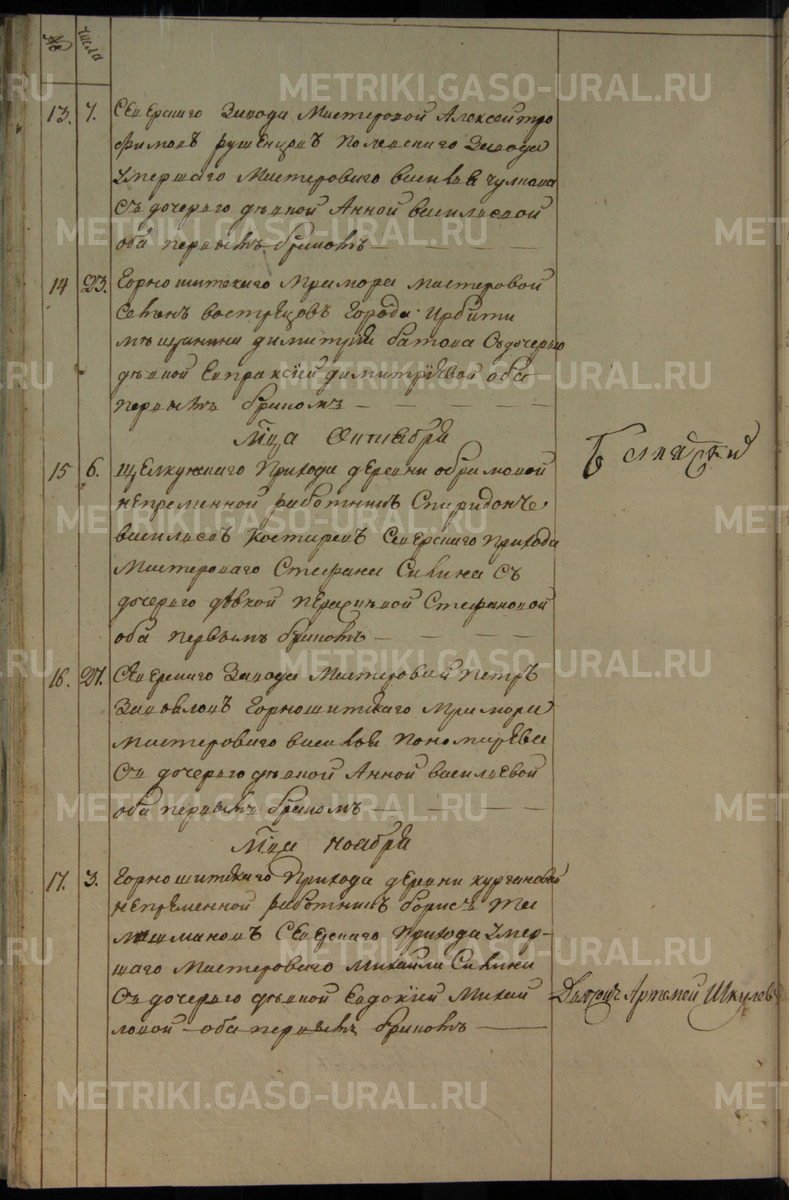 № числа
13. 7. Северскаго Завода Мастеровой Алексей Тро
фимовъ Полевскаго Завода
Умершаго Мастероваго Василья Чулкова
Съ дочерью девкой Анной Васильевой
оба первымъ бракомъ
14 23. Горношитскаго Мрамора мастеровой
Вострецовъ Города Ирбити
мещанина Димитрия Батова Съ дочерью
девкой Евпраксией Димитриевой оба
первымъ бракомъ
Мца Октября
15 6. Щелкунскаго Прихода деревни
непременной работникъ Спиридонъ
Васильевъ Костаревъ Северскаго Прихода
Мастероваго Стефана Сивкина съ
дочерью девкой Стефановой
оба первымъ бракомъ
16. 27. Северскаго Завода Мастеровый Петръ
Горношитскаго Мрамора
Мастероваго Василья Пономарева
Съ дочерью девкой Анной Васильевой
оба первымъ бракомъ
Мца Ноября
17. 3. Горношитскаго Прихода деревни Кургановой
непременной работникъ Борисъ
Северскаго Прихода Умер-
шаго Мастероваго Михайла Сивкина
Съ дочерью девкой Евдокией Михай
ловой оба первымъ бракомъ
Артемей Шкулевъ
METRIKI.GASO-URAL.RU